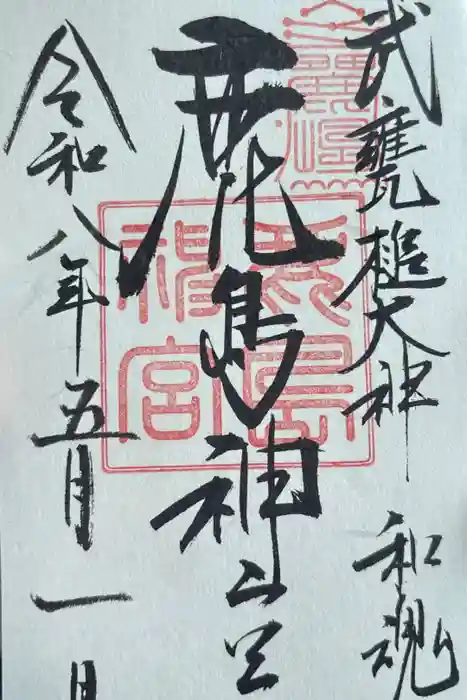 武甕槌大神 和魂
鹿島神宮
令和八年五月一日
鹿島
神宮